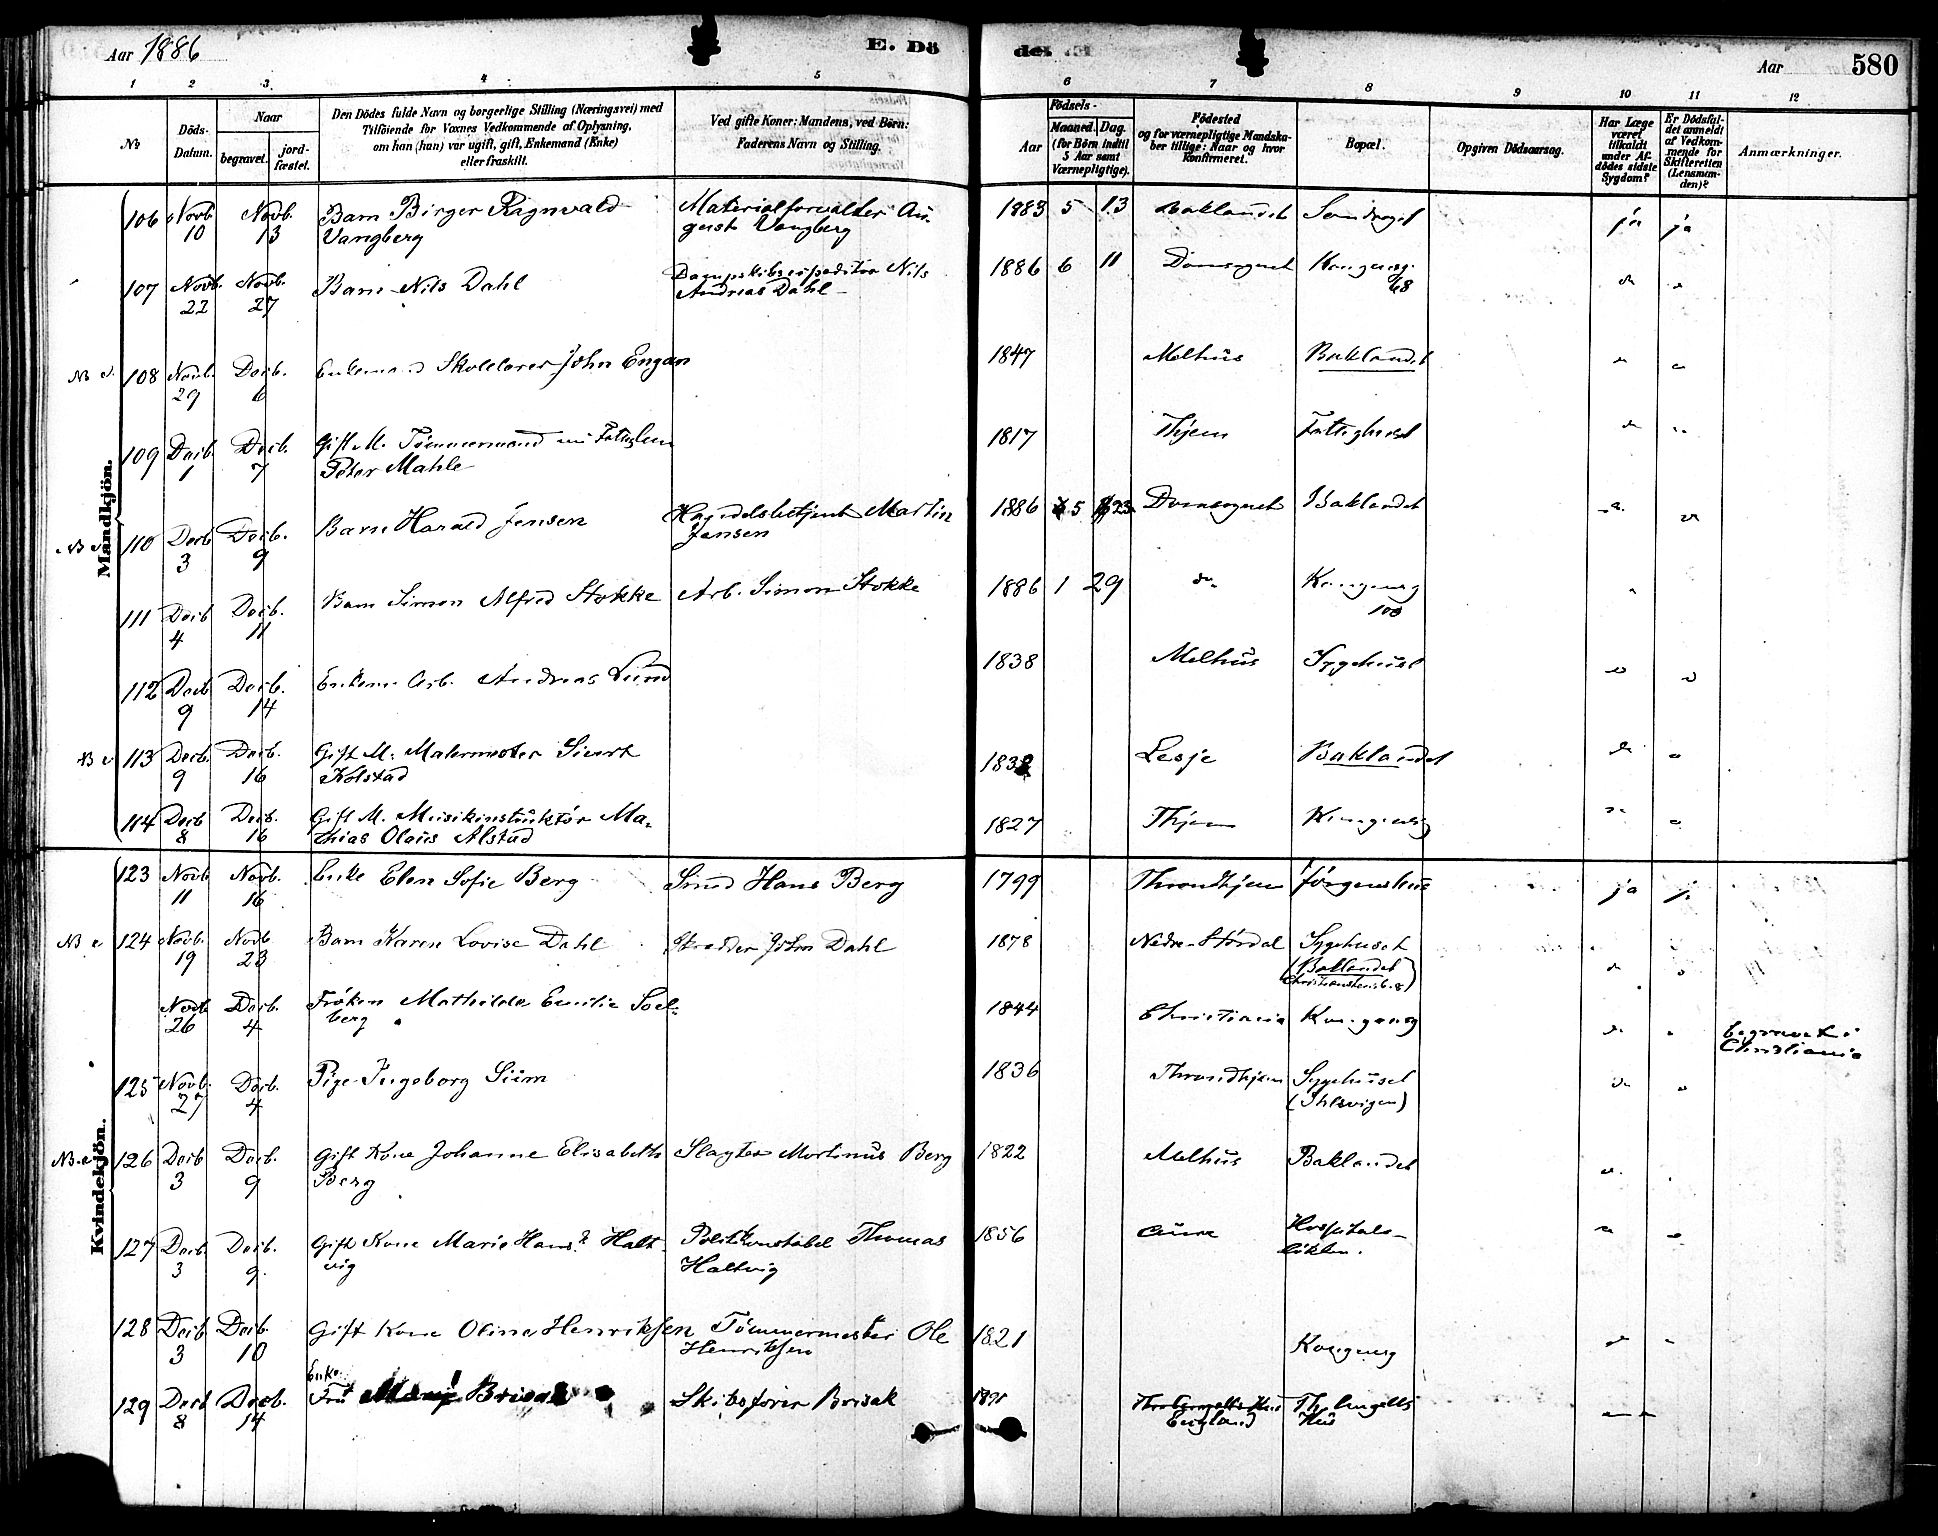 Aar 1886
E. Dö
de
Aar
580
1 2 3 4 5 6 7 8 9 10 11 12
No
Döds-
Datum.
Naar
begravet.
jord-
fæstet.
Den Dödes fulde Navn og borgerlige Stilling (Næringsvei) med
Tilföiende for Voxnes Vedkommende af Oplysning,
om han (hun) var ugift, gift, Enkemand (Enke)
eller fraskilt.
Ved gifte Koner: Mandens, ved Börn:
Faderens Navn og Stilling.
Födsels-
Aar
Maaned. Dag.
(for Börn indtil
5 Aar samt
Værnepligtige).
Födested
og for værnepligtige Mandska-
ber tillige: Naar og hvor
konfirmeret.
Bopæl.
Opgiven Dödsaarsag.
Har Læge
været
tilkaldt
under Af-
dödes sidste
Sygdom?
Er Dödsfal-
det anmeldt
af Vedkom-
mende for
Skifteretten
(Lensman-
den)?
Anmærkninger.
Mandkjön.
106 Novb. 10 Novb. 13 Barn Birger Rignvald Materialforvalter Au- 1883 5 13 Baklandet ja ja
Vangberg gust Vangberg
107 Novb. 22 Novb. 27 Barn Nils Dahl Dampskibsexpeditør Nils 1886 6 11 Domsognet Kongensg. do
Andreas Dahl 68
108 Novb. 29 Decb. 6 Enkemand Skolelærer John Engan 1847 Melhus Baklandet
109 Decb. 1 Decb. 7 Gift M. Tømmermand 1817 Thjem Fattighuset
Peter Mahle
110 Decb 3 Decb. 9 Barn Harald Jensen Handelsbetjent Martin 1886 5 23 Domsognet Baklandet
Jensen
111 Decb 4 Decb. 11 Barn Simon Alfred Stokke Arb. Simon Stokke 1886 1 29 do Kongensg
100
112 Decb 9 Decb. 14 Enkem. Arb. Andreas Lund 1838 Melhus Sygehuset
113 Decb. 9 Decb. 16 Gift M. Malermester Sivert 1832 Lesje Baklandet
Kolstad
114 Decb 8 Decb. 16 Gift M. Musikinstruktør Ma- 1827 Thjem Kongensg
thias Olaus Alstad
Kvindekjön.
123 Novb 11 Novb. 16 Enke Elen Sofie Berg Smed Hans Berg 1799 Throndhjem ja ja
124 Novb. 19 Novb 23 Barn Karen Lovise Dahl Skrædder John Dahl 1878 Nedre-Stördal Sygehuset
(Baklandet
Novb 26 Decb. 4 Frøken Mathilde Emilie Soel- 1844 Christiania Kongensg begravet i
berg Christiania
125 Novb. 27 Decb. 4 Pige Ingeborg Siem 1836 Throndhjem Sygehuset
(Ihlsvigen)
126 Decb 3 Decb. 9 Gift Kone Johanne Elisabeth Slagter Martinus Berg 1822 Melhus Baklandet
Berg
127 Decb 3 Decb. 9. Gift Kone Marie Hans. Halt- Politikonstabel Thomas 1856 Aure Hospitals-
vig Haltvig løkken.
128 Decb 3 Decb. 10 Gift Kone Oline Henriksen Tømmermester Ole 1821 Kongensg
Henriksen
Enke.
129 Decb 8 Decb. 14 Fru Brisak Skibsfører Brisak Th. Angells
England Hus